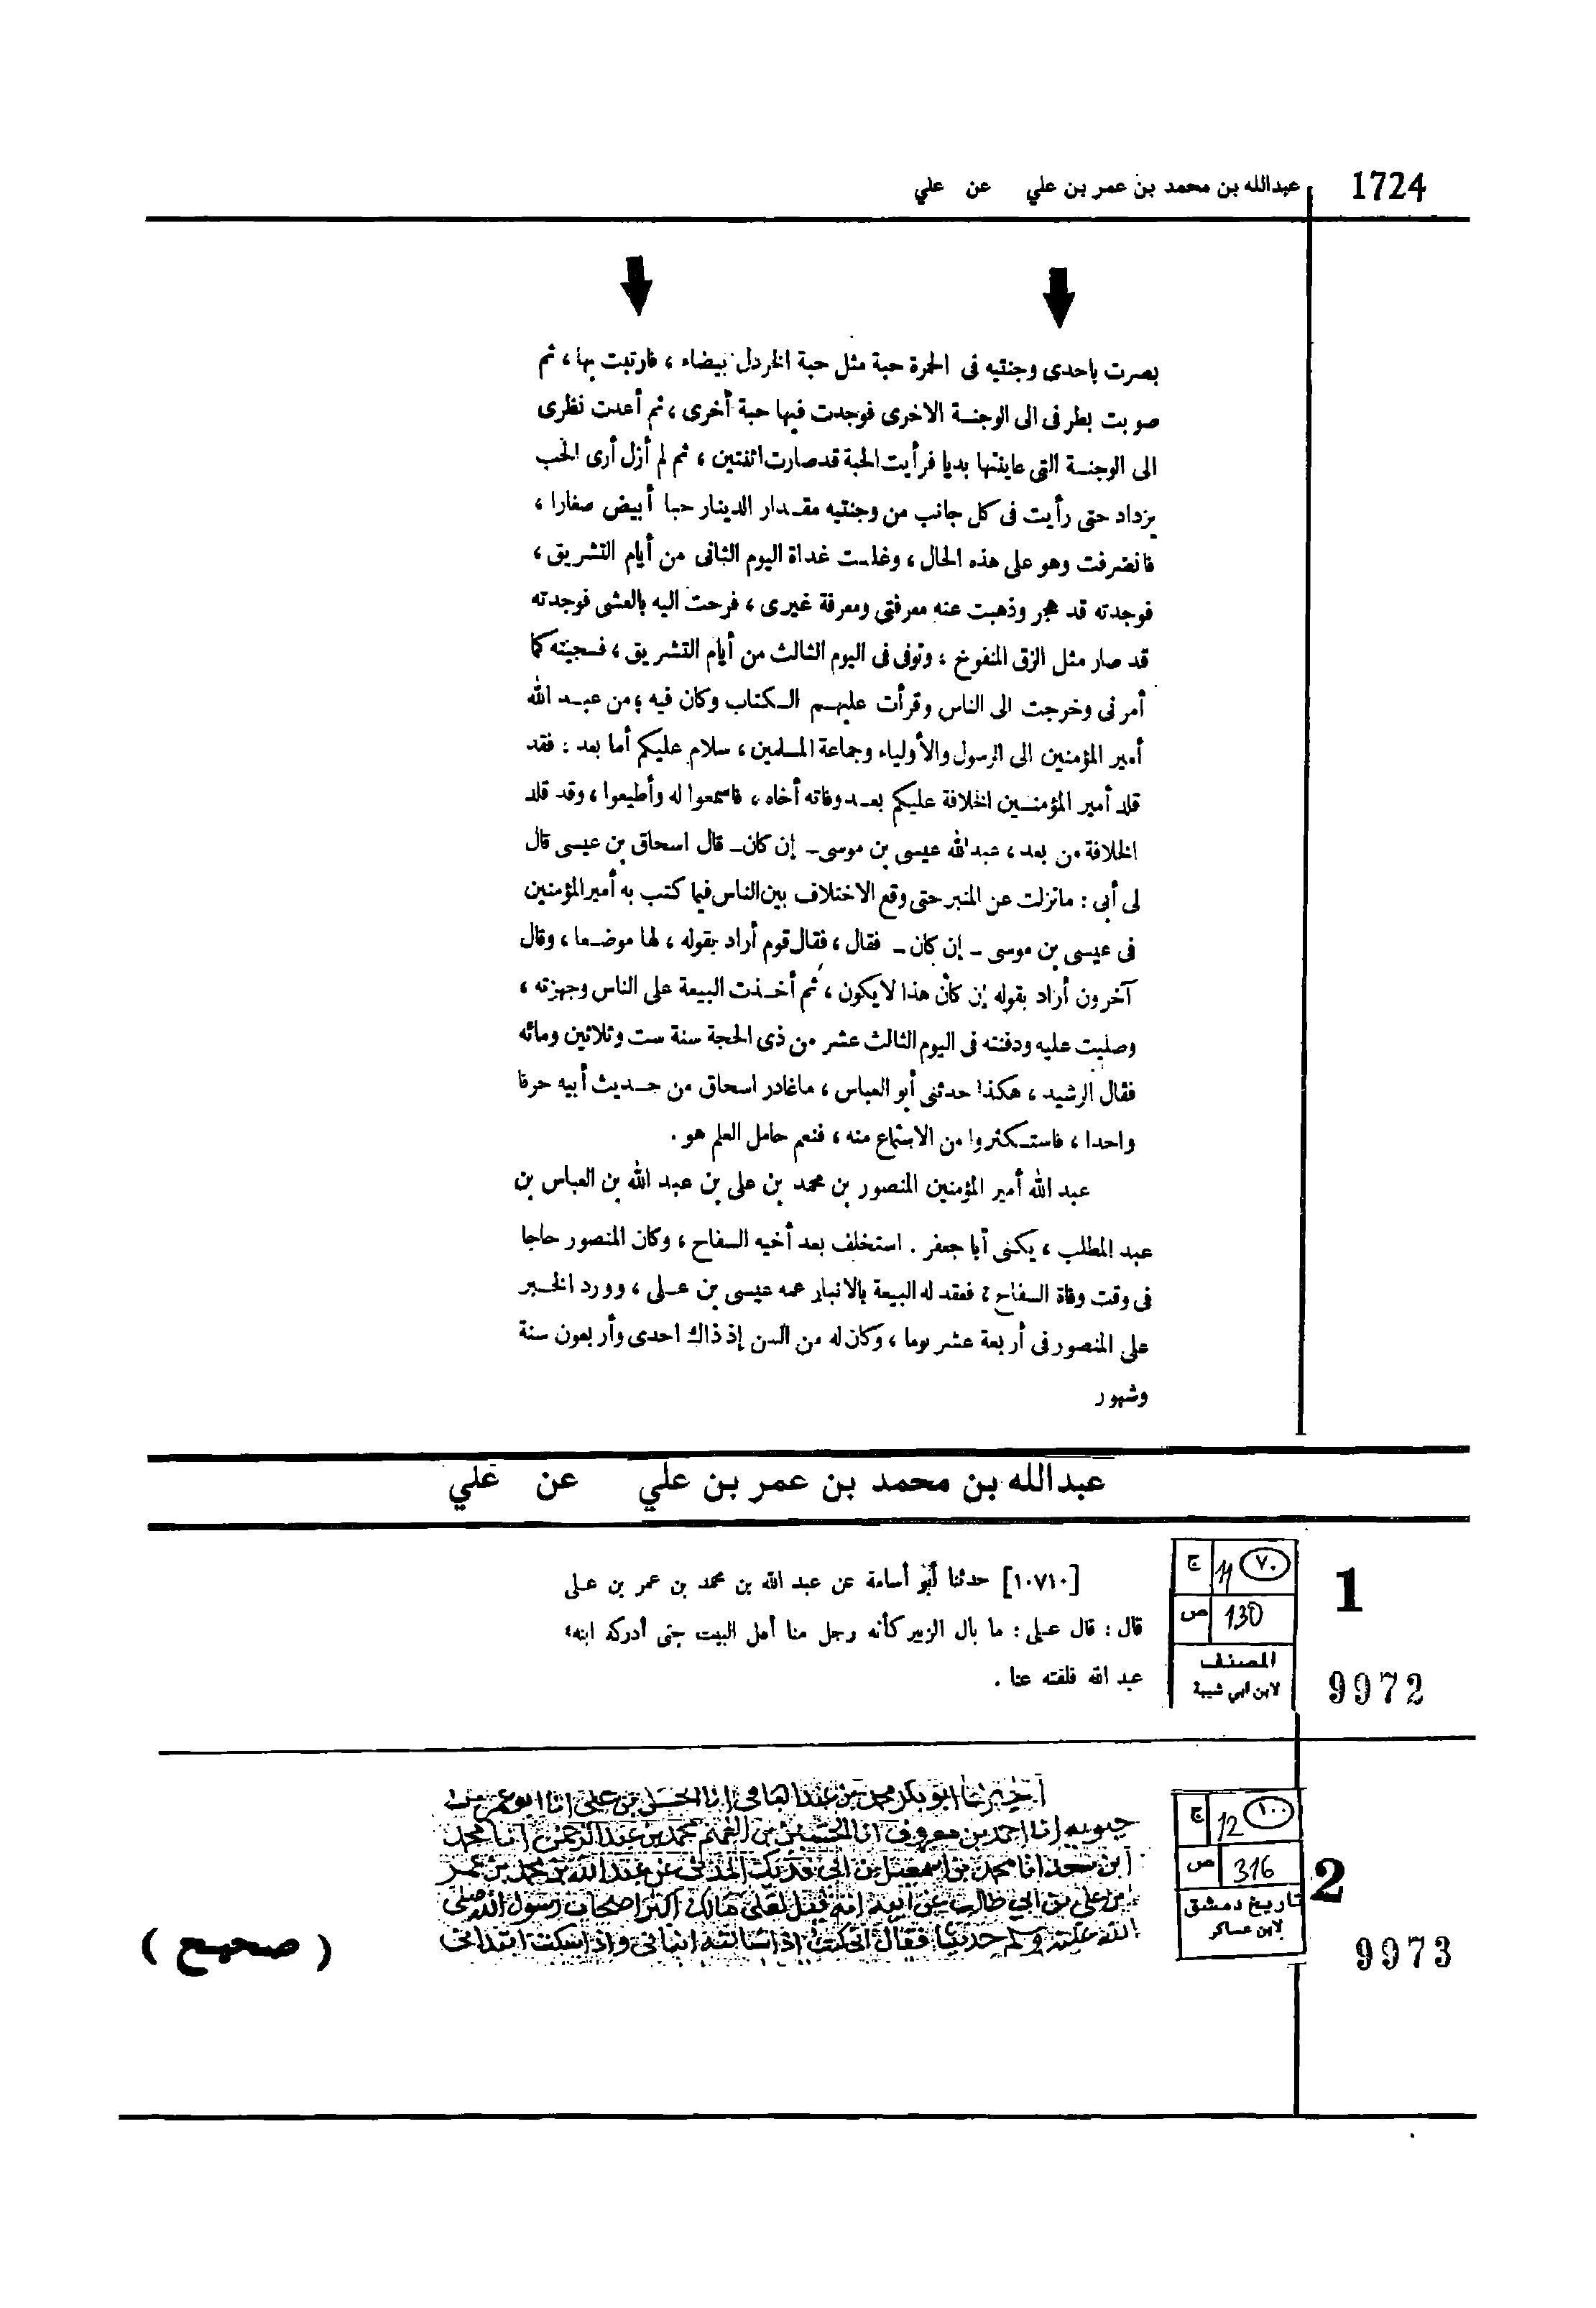 1724
عبدالله بن محمد بن عمر بن علي عن علي
بصرت باحدى وجنتيه فى الحمرة حبة مثل حبة الخردل بيضاء ، فارتبت بها ، ثم
صوبت بطرفى الى الوجنة الاخرى فوجدت فيها حبة أخرى ، ثم أعدت نظرى
الى الوجنة التى عاينتها بديا فرأيت الحبة قد صارت اثنتين ، ثم لم أزل أرى الحب
يزداد حتى رأيت فى كل جانب من وجنتيه مقدار الدينار حبا أبيض صغارا ،
فانصرفت وهو على هذه الحال ، وغلست غداة اليوم الثانى من أيام التشريق ،
فوجدته قد هجر وذهبت عنه معرفتى ومعرفة غيرى ، فرحت اليه بالعشى فوجدته
قد صار مثل الزق المنفوخ ، وتوفى فى اليوم الثالث من أيام التشريق ، فسجيته كما
أمرنى وخرجت الى الناس وقرأت عليهم الكتاب وكان فيه ؛ من عبد الله
أمير المؤمنين الى الرسول والأولياء وجماعة المسلمين ، سلام عليكم أما بعد : فقد
قلد أمير المؤمنين الخلافة عليكم بعد وفاته أخاه ، فاسمعوا له وأطيعوا ، وقد قلد
الخلافة من بعد ، عبد الله عيسى بن موسى ـ إن كان ـ قال اسحاق بن عيسى قال
لى أبى : مانزلت عن المنبر حتى وقع الاختلاف بين الناس فيما كتب به أمير المؤمنين
فى عيسى بن موسى ـ إن كان ـ فقال ، فقال قوم أراد بقوله ، لها موضعا ، وقال
آخرون أراد بقوله إن كان هذا لا يكون ، ثم أخذت البيعة على الناس وجهزته ،
وصليت عليه ودفنته فى اليوم الثالث عشر من ذى الحجة سنة ست وثلاثين ومائه
فقال الرشيد ، هكذا حدثنى أبو العباس ، ماغادر اسحاق من حديث أبيه حرفا
واحدا ، فاستكثروا من الاستماع منه ، فنعم حامل العلم هو .
عبد الله أمير المؤمنين المنصور بن محمد بن على بن عبد الله بن العباس بن
عبد المطلب ، يكنى أبا جعفر . استخلف بعد أخيه السفاح ، وكان المنصور حاجا
فى وقت وفاة السفاح ، فعقد له البيعة بالانبار عمه عيسى بن على ، وورد الخبر
على المنصور فى أربعة عشر يوما ، وكان له من السن إذ ذاك احدى وأربعون سنة
وشهور
عبدالله بن محمد بن عمر بن علي عن علي
1
ج 11 ٧٠
ص 130
المصنف
لابن ابي شيبة
9972
[١٠٧١٠] حدثنا أبو أسامة عن عبد الله بن محمد بن عمر بن على
قال : قال على : ما بال الزبير كأنه رجل منا أهل البيت حتى أدركه ابنه
عبد الله فلفته عنا .
2
ج 12 ١٠٠
ص 316
تاريخ دمشق
لابن عساكر
9973
أخبرنا ابو بكر محمد بن عبد الباقي انا الحسن بن علي انا ابو عمر بن
حيويه انا احمد بن معروف انا الحسين بن الفهم محمد بن عبد الرحمن انا محمد
ابن سعد انا محمد بن اسمعيل بن ابي فديك المدني عن عبد الله بن محمد بن عمر
بن علي بن ابي طالب عن ابيه انه قيل لعلي مالك اكثر اصحاب رسول الله صلى
الله عليه وسلم حديثا فقال اني كنت اذا سالته انباني واذا سكت ابتداني
( صحيح )